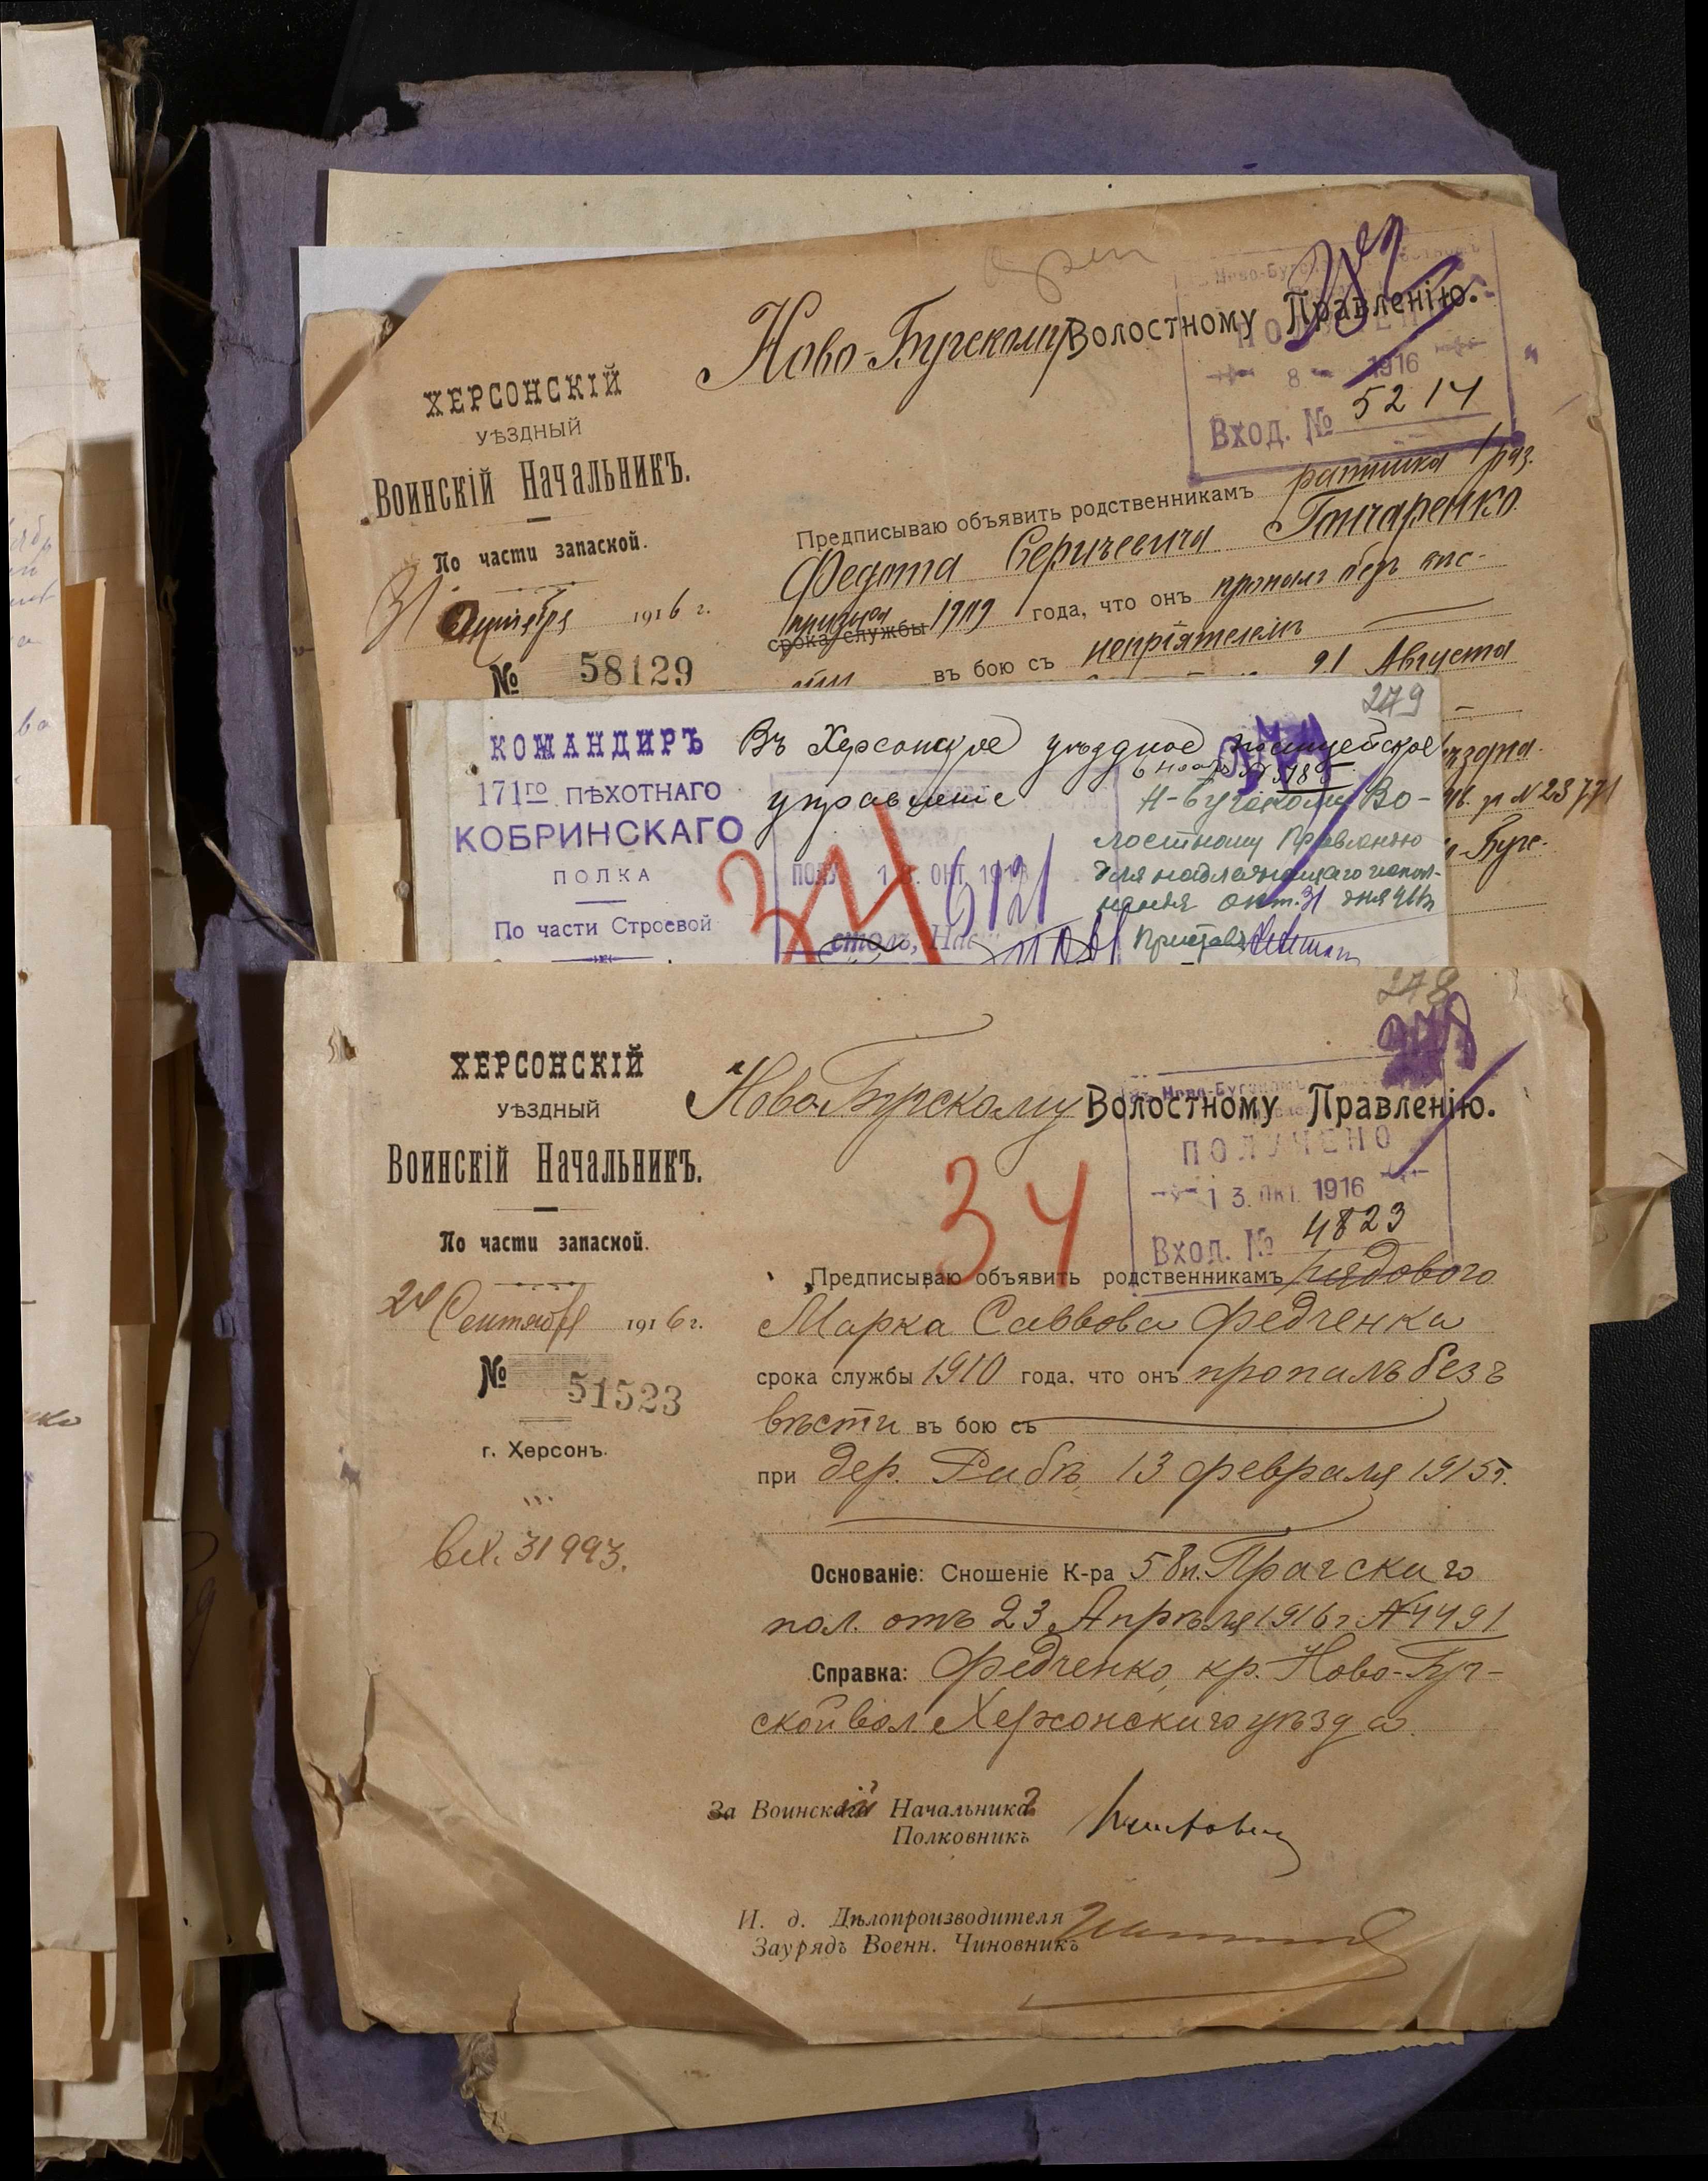 Ново-Бугскому Волостному Правленію.
ПОЛУЧЕНО
8 1916
Вход. № 5214
ХЕРСОНСКІЙ
УѢЗДНЫЙ
Воинскій Начальникъ.
По части запасной.
31 Октября 1916 г.
№ 58129
Предписываю объявить родственникамъ ратника 1 раз.
Федота Сергѣевича Гончаренко
призыва срока службы 1909 года, что онъ пропалъ безъ вѣс-
ти въ бою съ непріятелемъ
21 Августа
№ 23771
279
КОМАНДИРЪ
171го ПѢХОТНАГО
КОБРИНСКАГО
ПОЛКА
По части Строевой
Въ Херсонское уѣздное полицейское
управленіе
Н-Бугскому Во-
лостному Правленію
для надлежащаго испол-
ненія окт. 31 дня 916
Приставъ
ОКТ. 191
6121
столъ,
278
ХЕРСОНСКІЙ
УѢЗДНЫЙ
Воинскій Начальникъ.
По части запасной.
24 Сентября 1916 г.
№ 51523
г. Херсонъ.
вх. 31993.
Ново-Бугскому Волостному Правленію.
ПОЛУЧЕНО
13. ОКТ. 1916
Вход. № 4823
34
Предписываю объявить родственникамъ рядового
Марка Саввова Федченка
срока службы 1910 года, что онъ пропалъ безъ
вѣсти въ бою съ
при дер. Рыбѣ, 13 февраля 1915 г.
Основаніе: Сношеніе К-ра 58 п. Прагскаго
пол. отъ 23 Апрѣля 1916 г. № 4491
Справка: Федченко, кр. Ново-Буг-
ской вол. Херсонскаго уѣзда.
За Воинскій Начальника
Полковникъ
И. д. Дѣлопроизводителя
Зауряд Военн. Чиновникъ